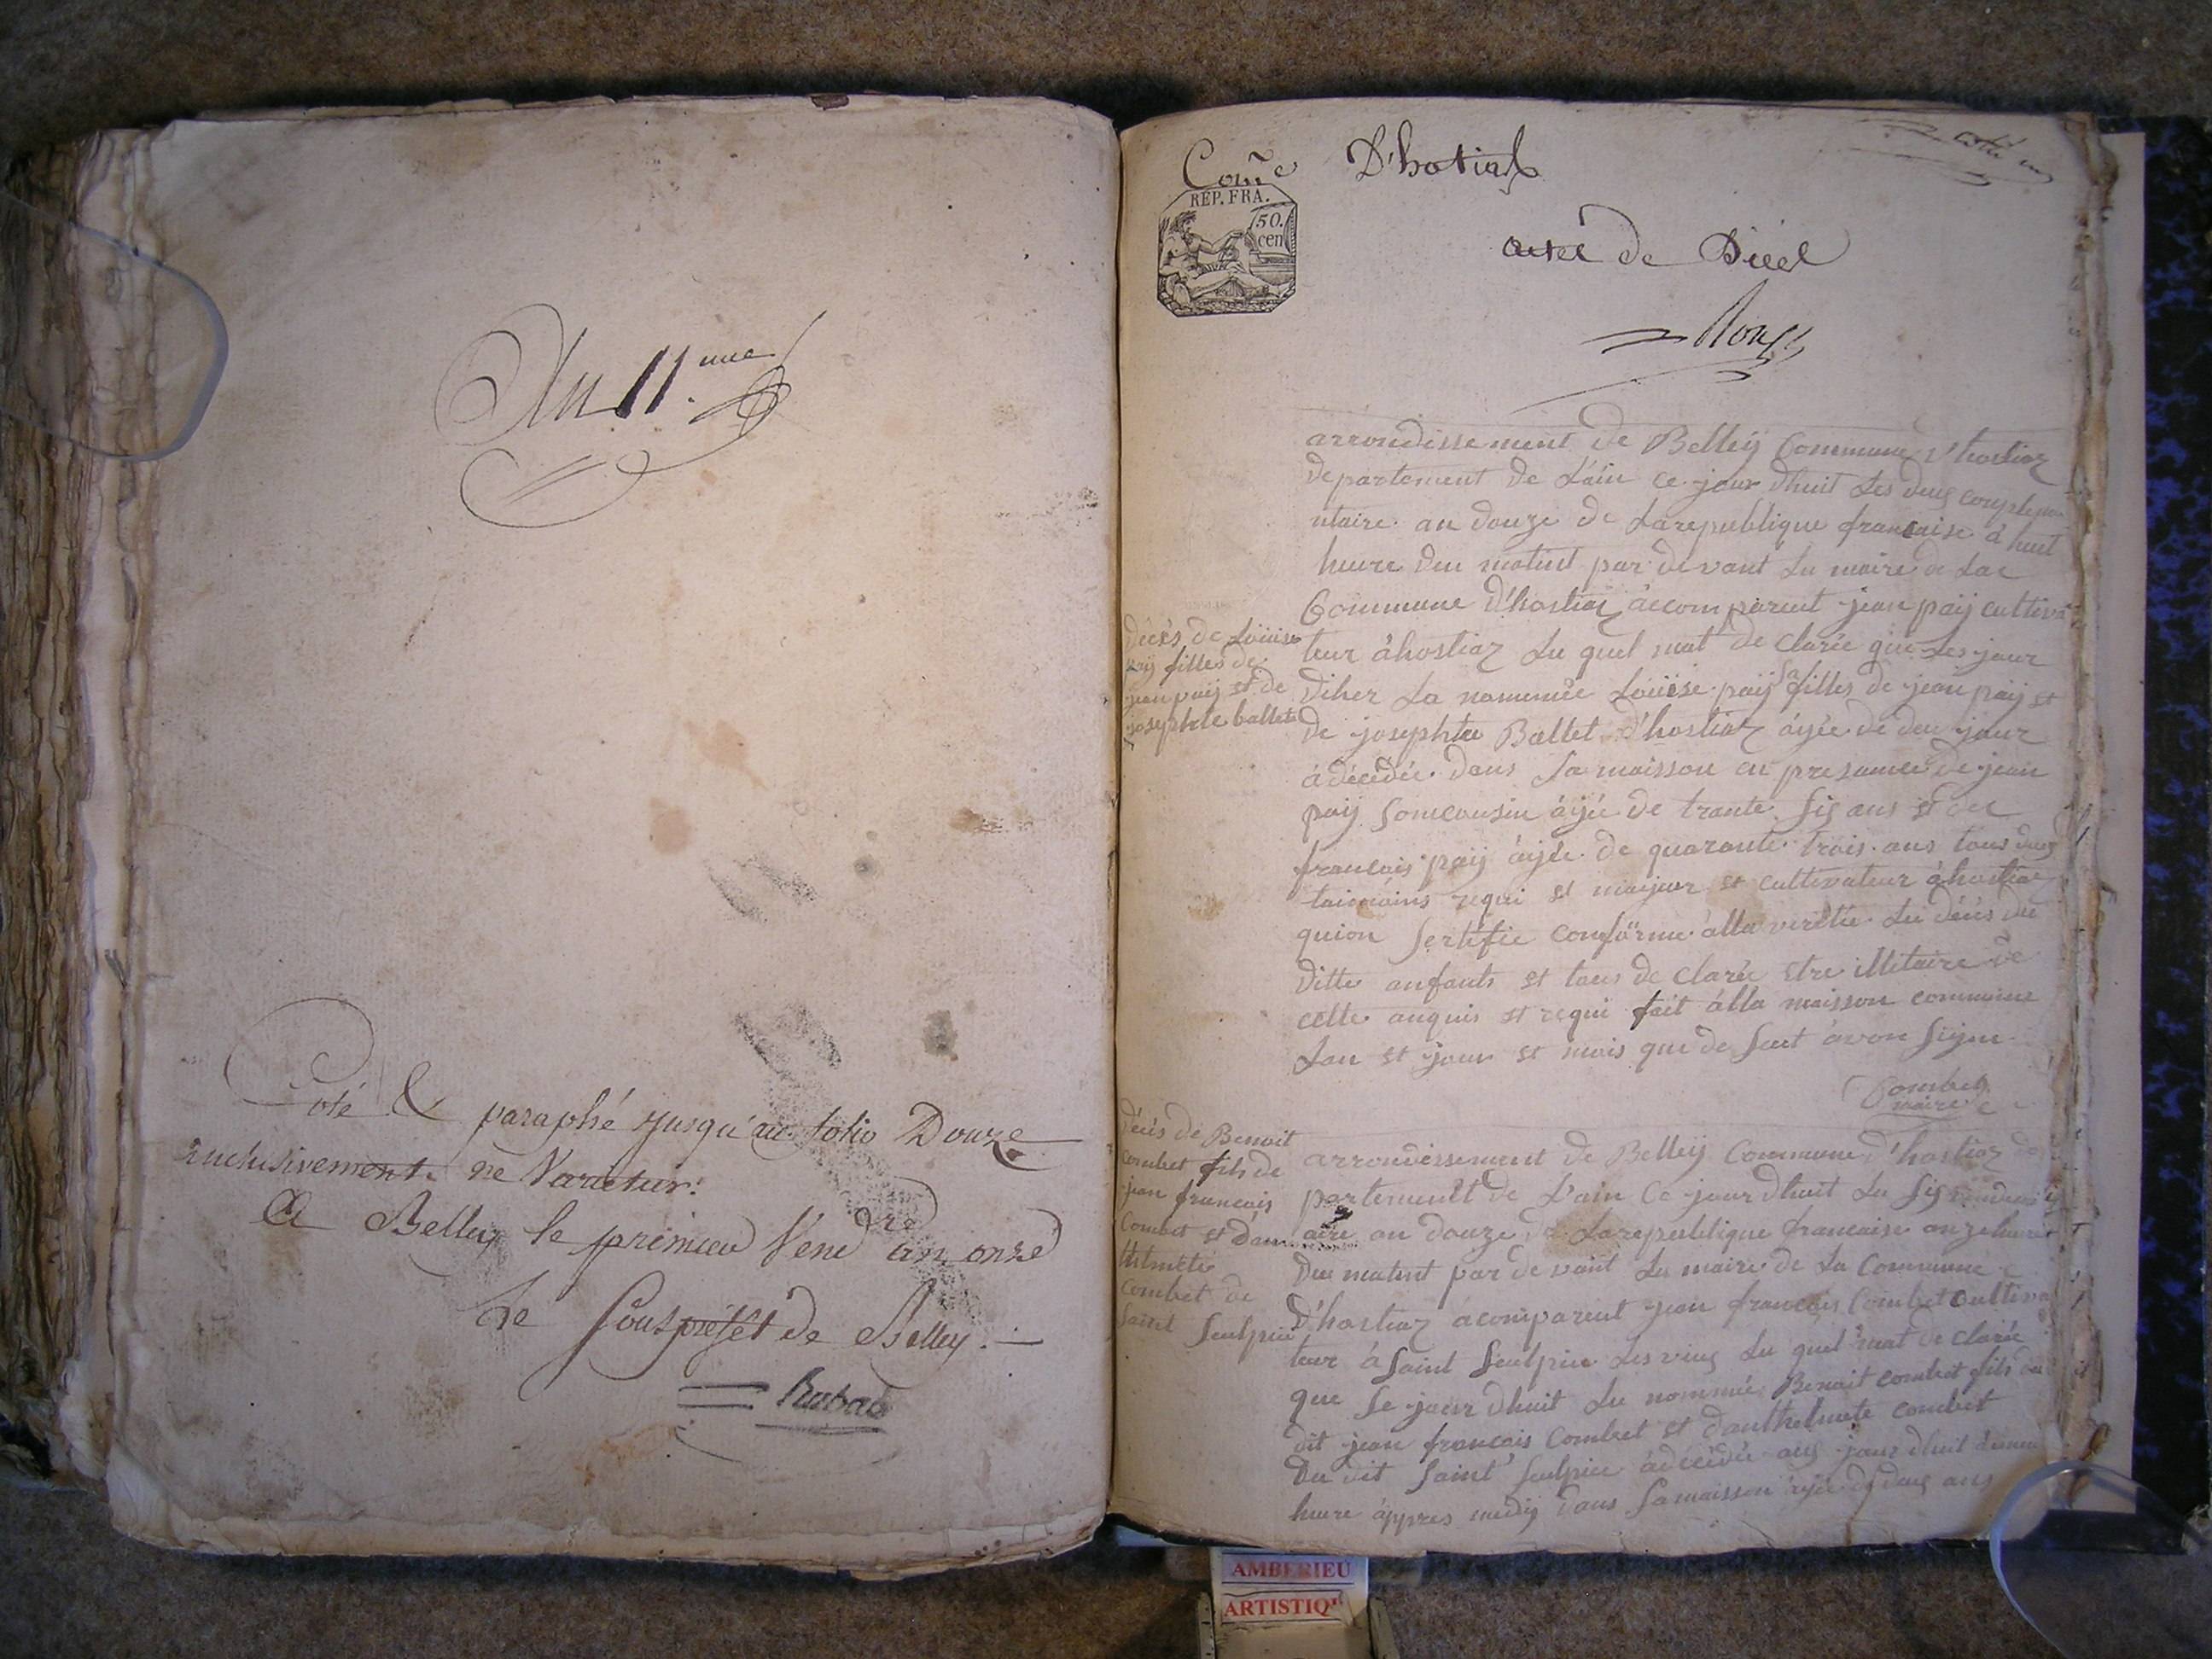 An 11.me
Coté & paraphé jusqu'au folio Douze
inclusivement ne Varietur.
A Belley le premier Vend.re an onze
Le Souspréfet de Belley.
Com.e D'hotiaz
REP. FRA.
50.
cen
acte de Décé
arrondissement de Belleÿ Commune d'hostiaz
departement de L'ain ce jour dhuit Les deus compleme
ntaire an douze de La republique francaise à huit
heure deu matint par devant Lu maire de Lac
Commune d'hostiaz àccomparent jean paÿ cultiva
teur àhostiaz Lu quel mat de clarée que Les jour
diher La nommèe Loüise paÿ sa filles de jean paÿ et
de josephte Ballet d'hostiaz àjée de deu jour
à décédée dans Sa maisson en presance de jean
paÿ Soncousin àjée de trante sis ans et de
francois paÿ àjée de quarante trois ans tous deus
taimoins requi et majeur et cultivateur àhostiaz
quion Sertifie conforme àlla veritée Lu décés du
ditte anfants et tous de clarée etre illitaire de
cette anquis et requi fait àlla maisson commune
Lan et jour et mois que de Sut àvon Sijnee
Combet
maire
décés de Loüise
paÿ filles de
jean paÿ et de
josephte ballet
décés de Benoit
combet fils de
jean francois
Combet et dan
thelmete
combet de
Saint Seulpice
arrondissement de Belleÿ Commune d'hostiaz de
partement de L'ain Ce jour dhuit Lu Sis
aire an douze de La republique francaise onze heure
Deu matint par devant Lu maire de La Commune
D'hostiaz acomparent jean francois Combet Cultiva
teur à Saint Seulpice Les vieus Lu quel mat de clarée
que Se jour dhuit Lu nommée Benoit combet fils du
dit jean francois Combet et danthelmete combet
Du dit Saint Seulpice à décédée aus jour dhuit
heure àppres midÿ dans Sa maisson àjée de deus ans
AMBERIEU
ARTISTIQ